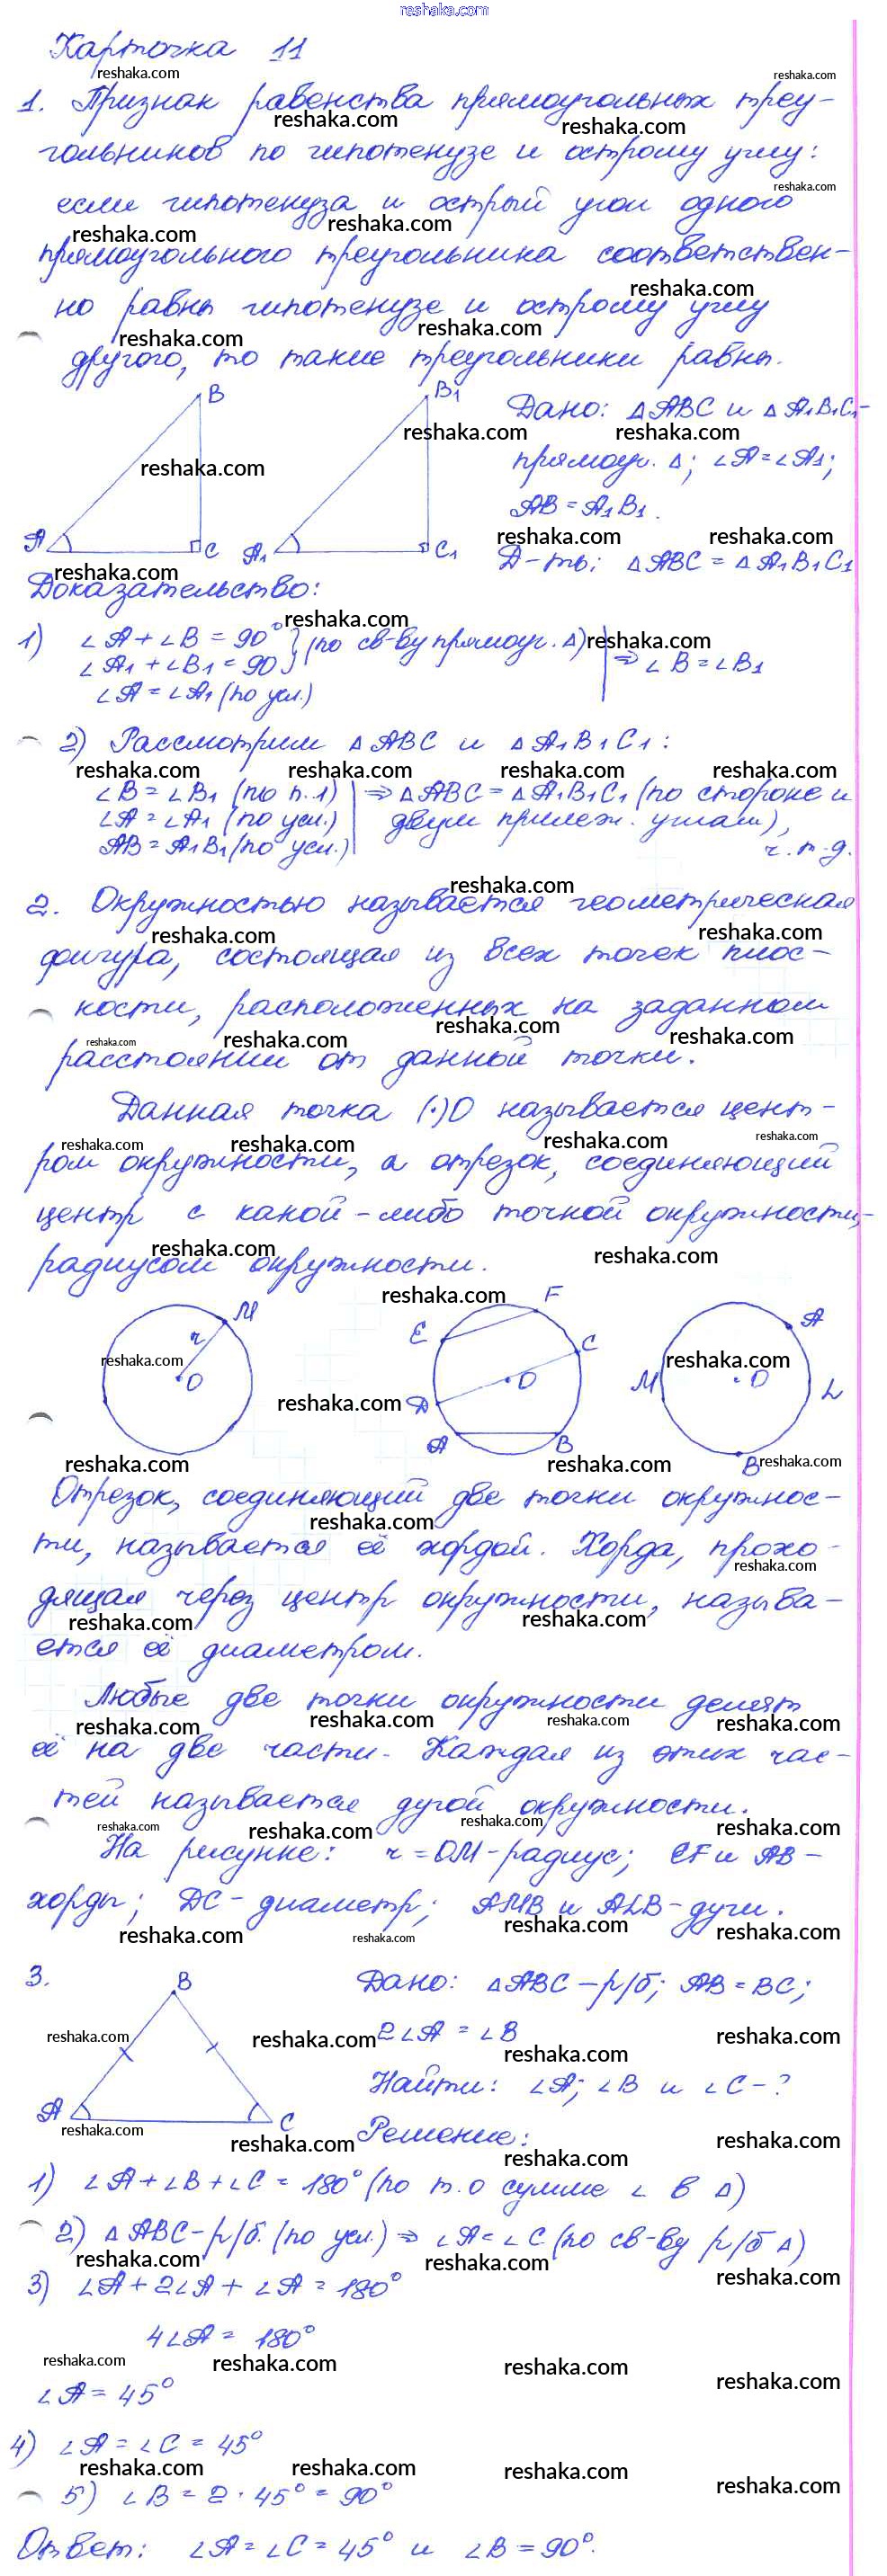 reshaka.com
Карточка 11
1. Признак равенства прямоугольных треу-
гольников по гипотенузе и острому углу:
если гипотенуза и острый угол одного
прямоугольного треугольника соответствен-
но равны гипотенузе и острому углу
другого, то такие треугольники равны.
B
B₁
A
C
A₁
C₁
Дано: △ABC и △A₁B₁C₁-
прямоуг. △; ∠A=∠A₁;
AB=A₁B₁.
Д-ть: △ABC = △A₁B₁C₁
Доказательство:
1) ∠A+∠B=90° } (по св-ву прямоуг. △) ⇒ ∠B=∠B₁
∠A₁+∠B₁=90
∠A=∠A₁ (по усл.)
2) Рассмотрим △ABC и △A₁B₁C₁:
∠B=∠B₁ (по п.1) | ⇒ △ABC=△A₁B₁C₁ (по стороне и
∠A=∠A₁ (по усл.) | двум прилеж. углам),
AB=A₁B₁ (по усл.) | ч.т.д.
2. Окружностью называется геометрическая
фигура, состоящая из всех точек плос-
кости, расположенных на заданном
расстоянии от данной точки.
Данная точка (·)O называется цент-
ром окружности, а отрезок, соединяющий
центр с какой-либо точкой окружности,-
радиусом окружности.
M
r
O
F
E
C
O
D
A
B
A
M
O
L
B
Отрезок, соединяющий две точки окружнос-
ти, называется её хордой. Хорда, прохо-
дящая через центр окружности, называ-
ется её диаметром.
Любые две точки окружности делят
её на две части. Каждая из этих час-
тей называется дугой окружности.
На рисунке: r=OM-радиус; EF и AB-
хорды; DC-диаметр; AMB и ALB-дуги.
3.
B
A
C
Дано: △ABC-р/б; AB=BC;
2∠A=∠B
Найти: ∠A; ∠B и ∠C-?
Решение:
1) ∠A+∠B+∠C=180° (по т.о сумме ∠ в △)
2) △ABC-р/б. (по усл.) ⇒ ∠A=∠C (по св-ву р/б △)
3) ∠A+2∠A+∠A=180°
4∠A=180°
∠A=45°
4) ∠A=∠C=45°
5) ∠B=2·45°=90°
Ответ: ∠A=∠C=45° и ∠B=90°.